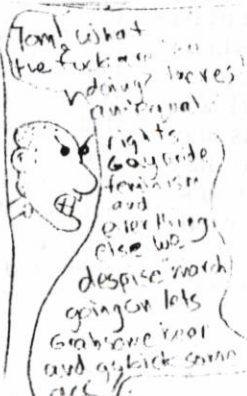 Tom! What
the fuck are you
doing? theres
an animal
rights
Gay pride
feminism
and
everthing
else we
despise march
going on lets
Grab some beer
and go kick some
ass!!